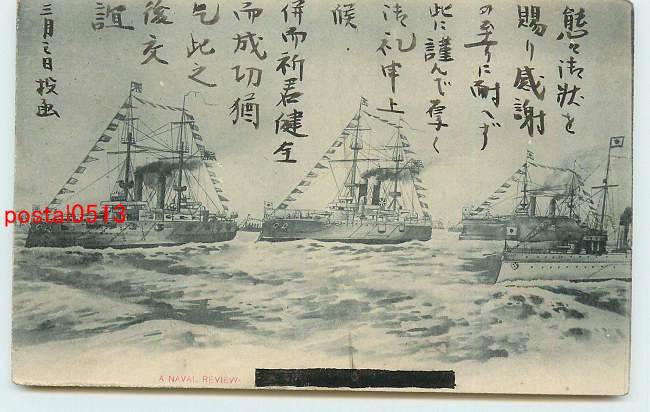 態々御状を
賜り感謝
の至りに耐へず
此に謹んで厚く
御礼申上
候
併而祈君健全
而成功猶
乞此之
後交
誼
三月三日投函
postal0513
A NAVAL REVIEW.